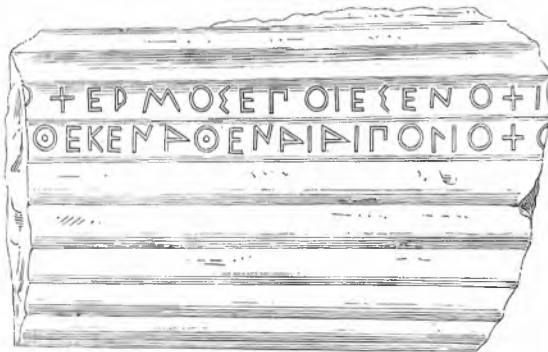 Ρ+ΕΡΜΟΣΕΠΟΙΕΣΕΝΟ+Ι
ΘΕΚΕΝΑΘΕΝΑΙΑΙΠΟΛΙΟ+Ο